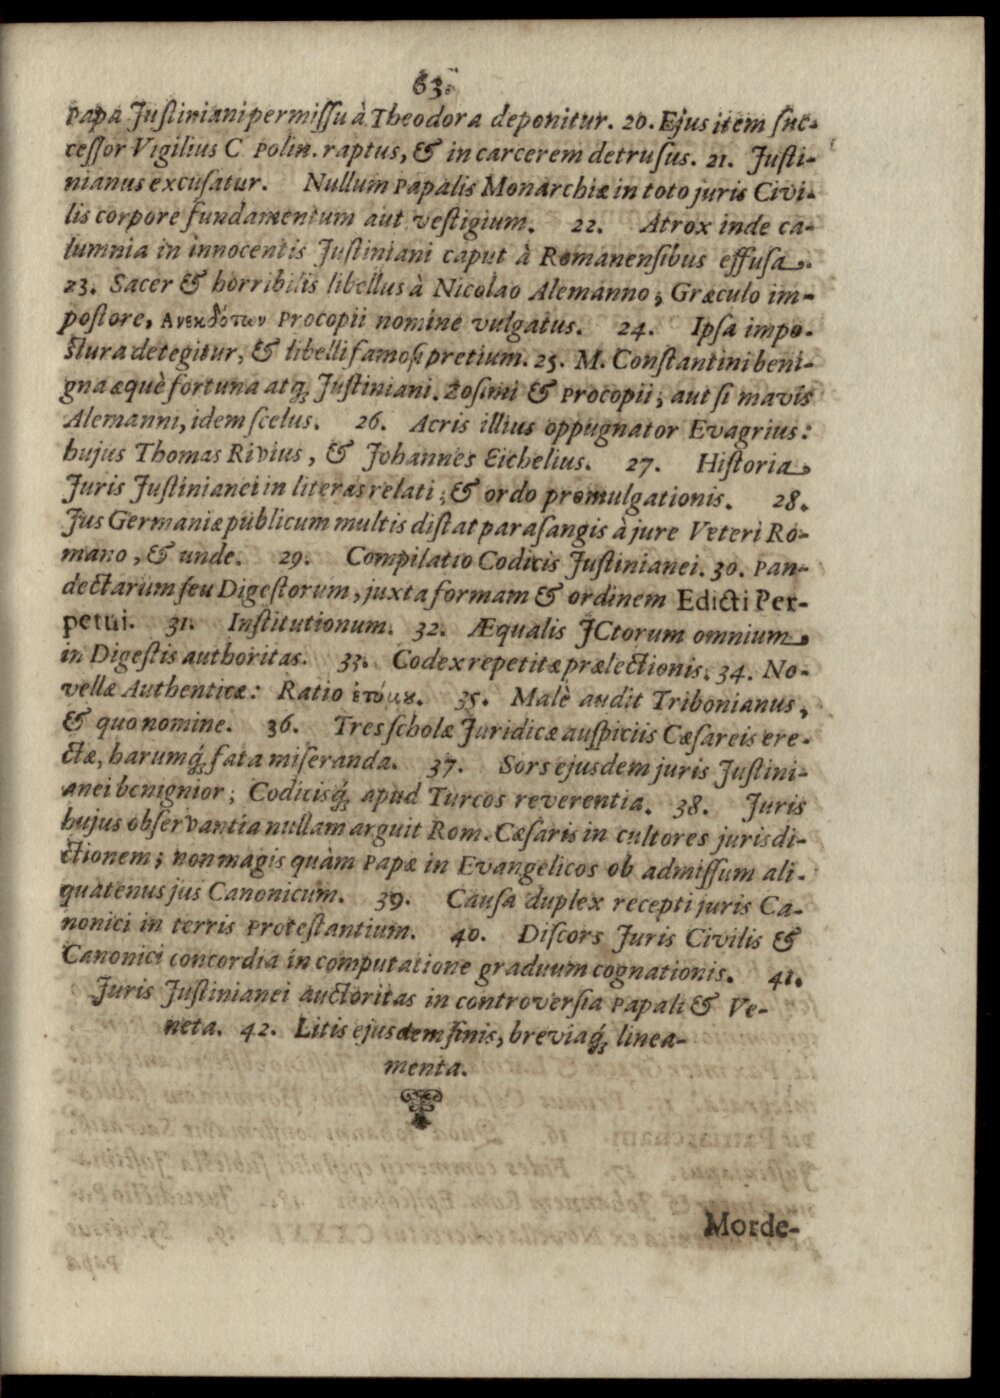 63.
Papa Juſtiniani permiſſu à Theodora deponitur. 20. Ejus item ſuc-
ceſſor Vigilius C Polin. raptus, & in carcerem detruſus. 21. Juſti-
nianus excuſatur. Nullum Papalis Monarchiæ in toto juris Civi-
lis corpore fundamentum aut veſtigium. 22. Atrox inde ca-
lumnia in innocentis Juſtiniani caput à Romanenſibus effuſa.
23. Sacer & horribilis libellus à Nicolao Alemanno, Græculo im-
poſtore, Ανεκδότων Procopii nomine vulgatus. 24. Ipſa impo-
ſtura detegitur, & libelli famoſi pretium. 25. M. Conſtantini beni-
gna æquè fortuna atq; Juſtiniani. Zoſimi & Procopii, aut ſi mavis
Alemanni, idem ſcelus. 26. Acris illius oppugnator Evagrius:
hujus Thomas Rivius, & Johannes Eichelius. 27. Hiſtoria
Juris Juſtinianei in literas relati, & ordo promulgationis. 28.
Jus Germaniæ publicum multis diſtat paraſangis à jure Veteri Ro-
mano, & unde. 29. Compilatio Codicis Juſtinianei. 30. Pan-
dectarum ſeu Digeſtorum, juxta formam & ordinem Edicti Per-
petui. 31. Inſtitutionum. 32. Æqualis JCtorum omnium
in Digeſtis authoritas. 33. Codex repetitæ prælectionis. 34. No-
vellæ Authenticæ: Ratio ἐτύμȣ. 35. Malè audit Tribonianus,
& quo nomine. 36. Tres ſcholæ Juridicæ auſpiciis Cæſareis ere-
ctæ, harumq́; fata miſeranda. 37. Sors ejusdem juris Juſtini-
anei benignior; Codicisq́; apud Turcos reverentia. 38. Juris
hujus obſervantia nullam arguit Rom. Cæſaris in cultores jurisdi-
ctionem; non magis quàm Papæ in Evangelicos ob admiſſum ali-
quatenus jus Canonicum. 39. Cauſa duplex recepti juris Ca-
nonici in terris Proteſtantium. 40. Diſcors Juris Civilis &
Canonici concordia in computatione graduum cognationis. 41.
Juris Juſtinianei auctoritas in controverſia Papali & Ve-
neta. 42. Litis ejusdem finis, breviaq́; linea-
menta.
Morde-